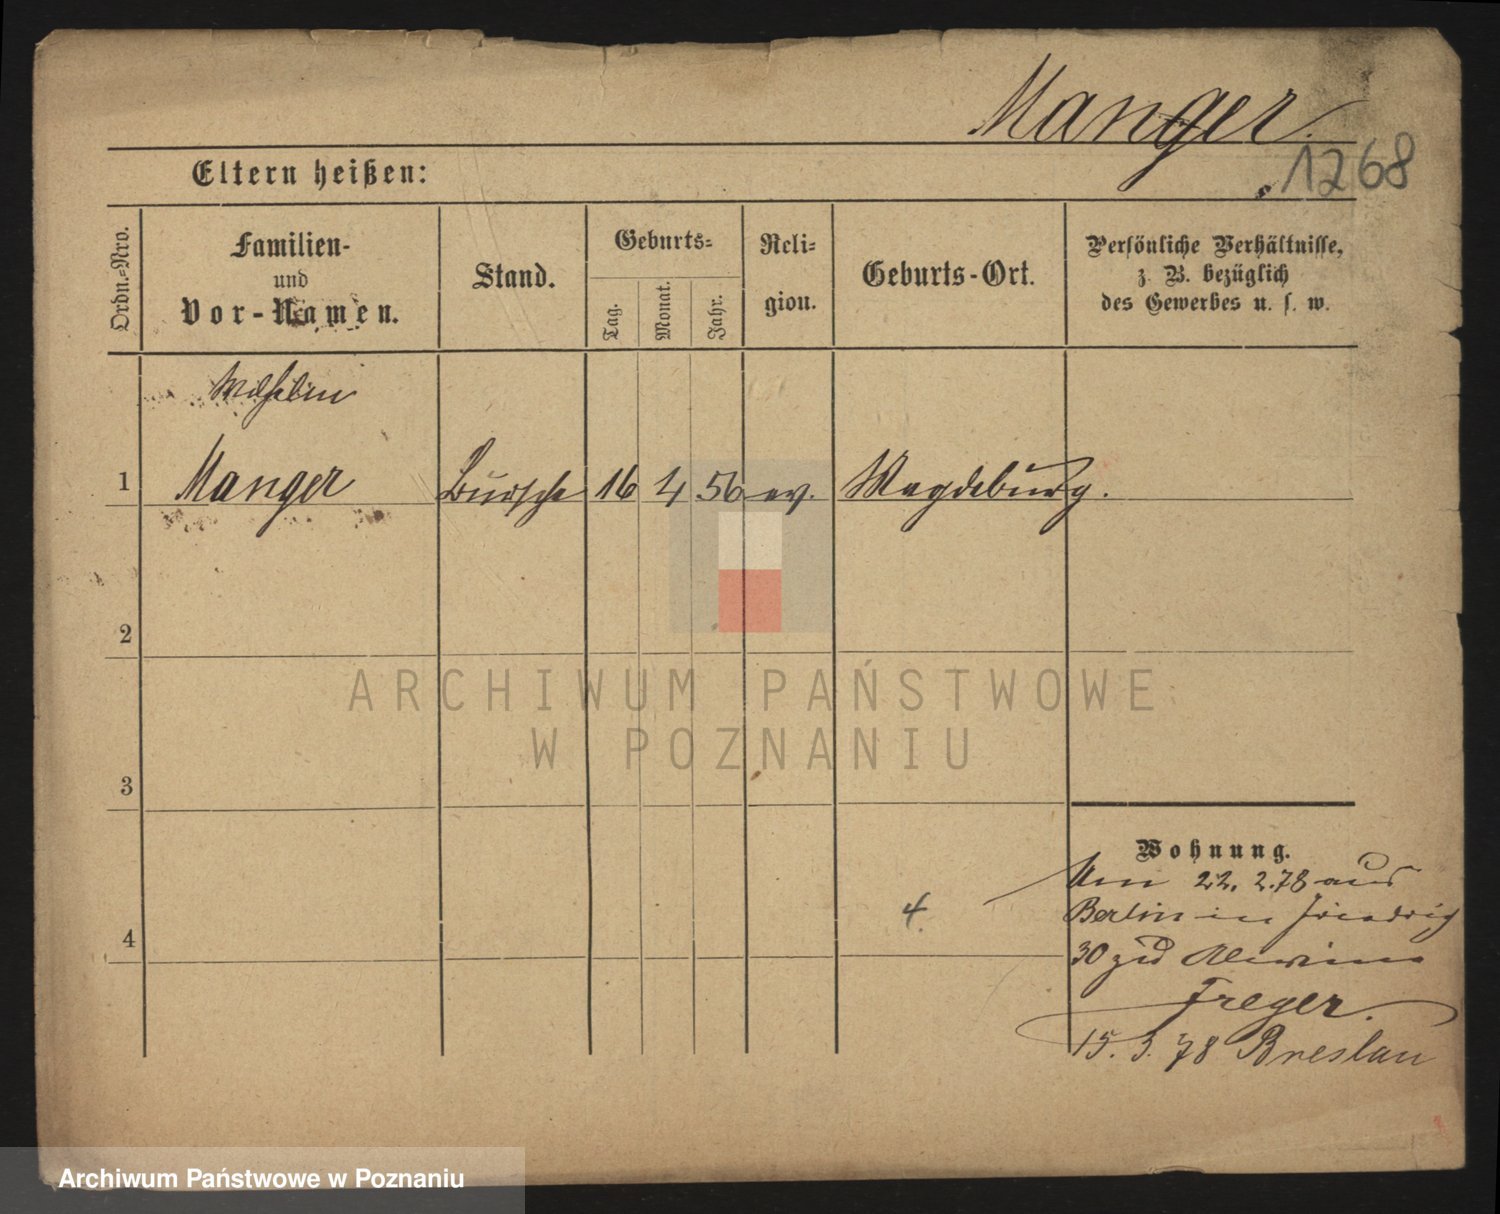 Manger.
1268
Eltern heißen:
Ordn.=Nro.
Familien-
und
Vor-Namen.
Stand.
Geburts=
Tag.
Monat.
Jahr.
Reli=
gion.
Geburts-Ort.
Persönliche Verhältnisse,
z. B. bezüglich
des Gewerbes u. s. w.
Wilhelm
1 Manger Bursche 16 4 56 ev. Magdeburg.
2
ARCHIWUM PAŃSTWOWE
W POZNANIU
3
Wohnung.
22. 2. 78 aus
Berlin in Friedrich
4 4.
30 zu
Freyer.
15. 3. 78 Breslau
Archiwum Państwowe w Poznaniu